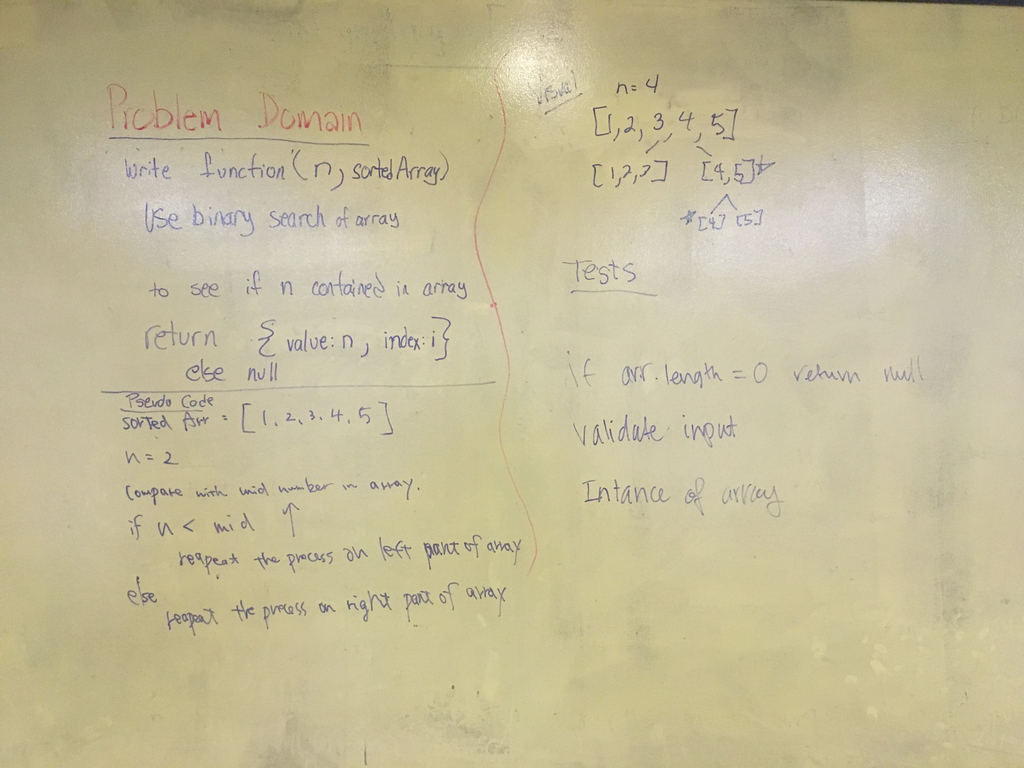 Problem Domain
write function(n, sortedArray)
Use binary search of array
to see if n contained in array
return { value: n, index: i }
else null
Pseudo Code
sorted Arr = [1, 2, 3, 4, 5]
n = 2
Compare with mid number in array.
if n < mid ↑
reapeat the process on left part of array
else
reapeat the process on right part of array
Visual
n = 4
[1, 2, 3, 4, 5]
[1,2,3] [4,5]*
*[4] [5]
Tests
if arr.length = 0 return null
validate input
Intance of array